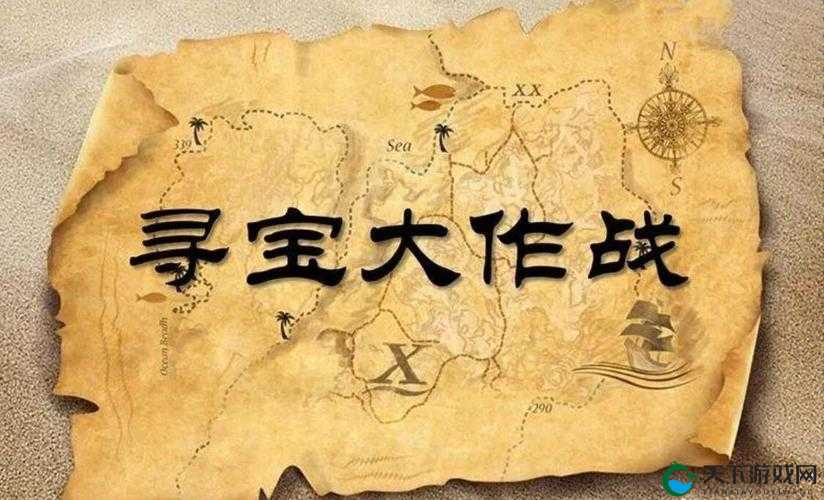 N
XX
339
Sea
S
寻宝大作战
X
290
天下游戏网